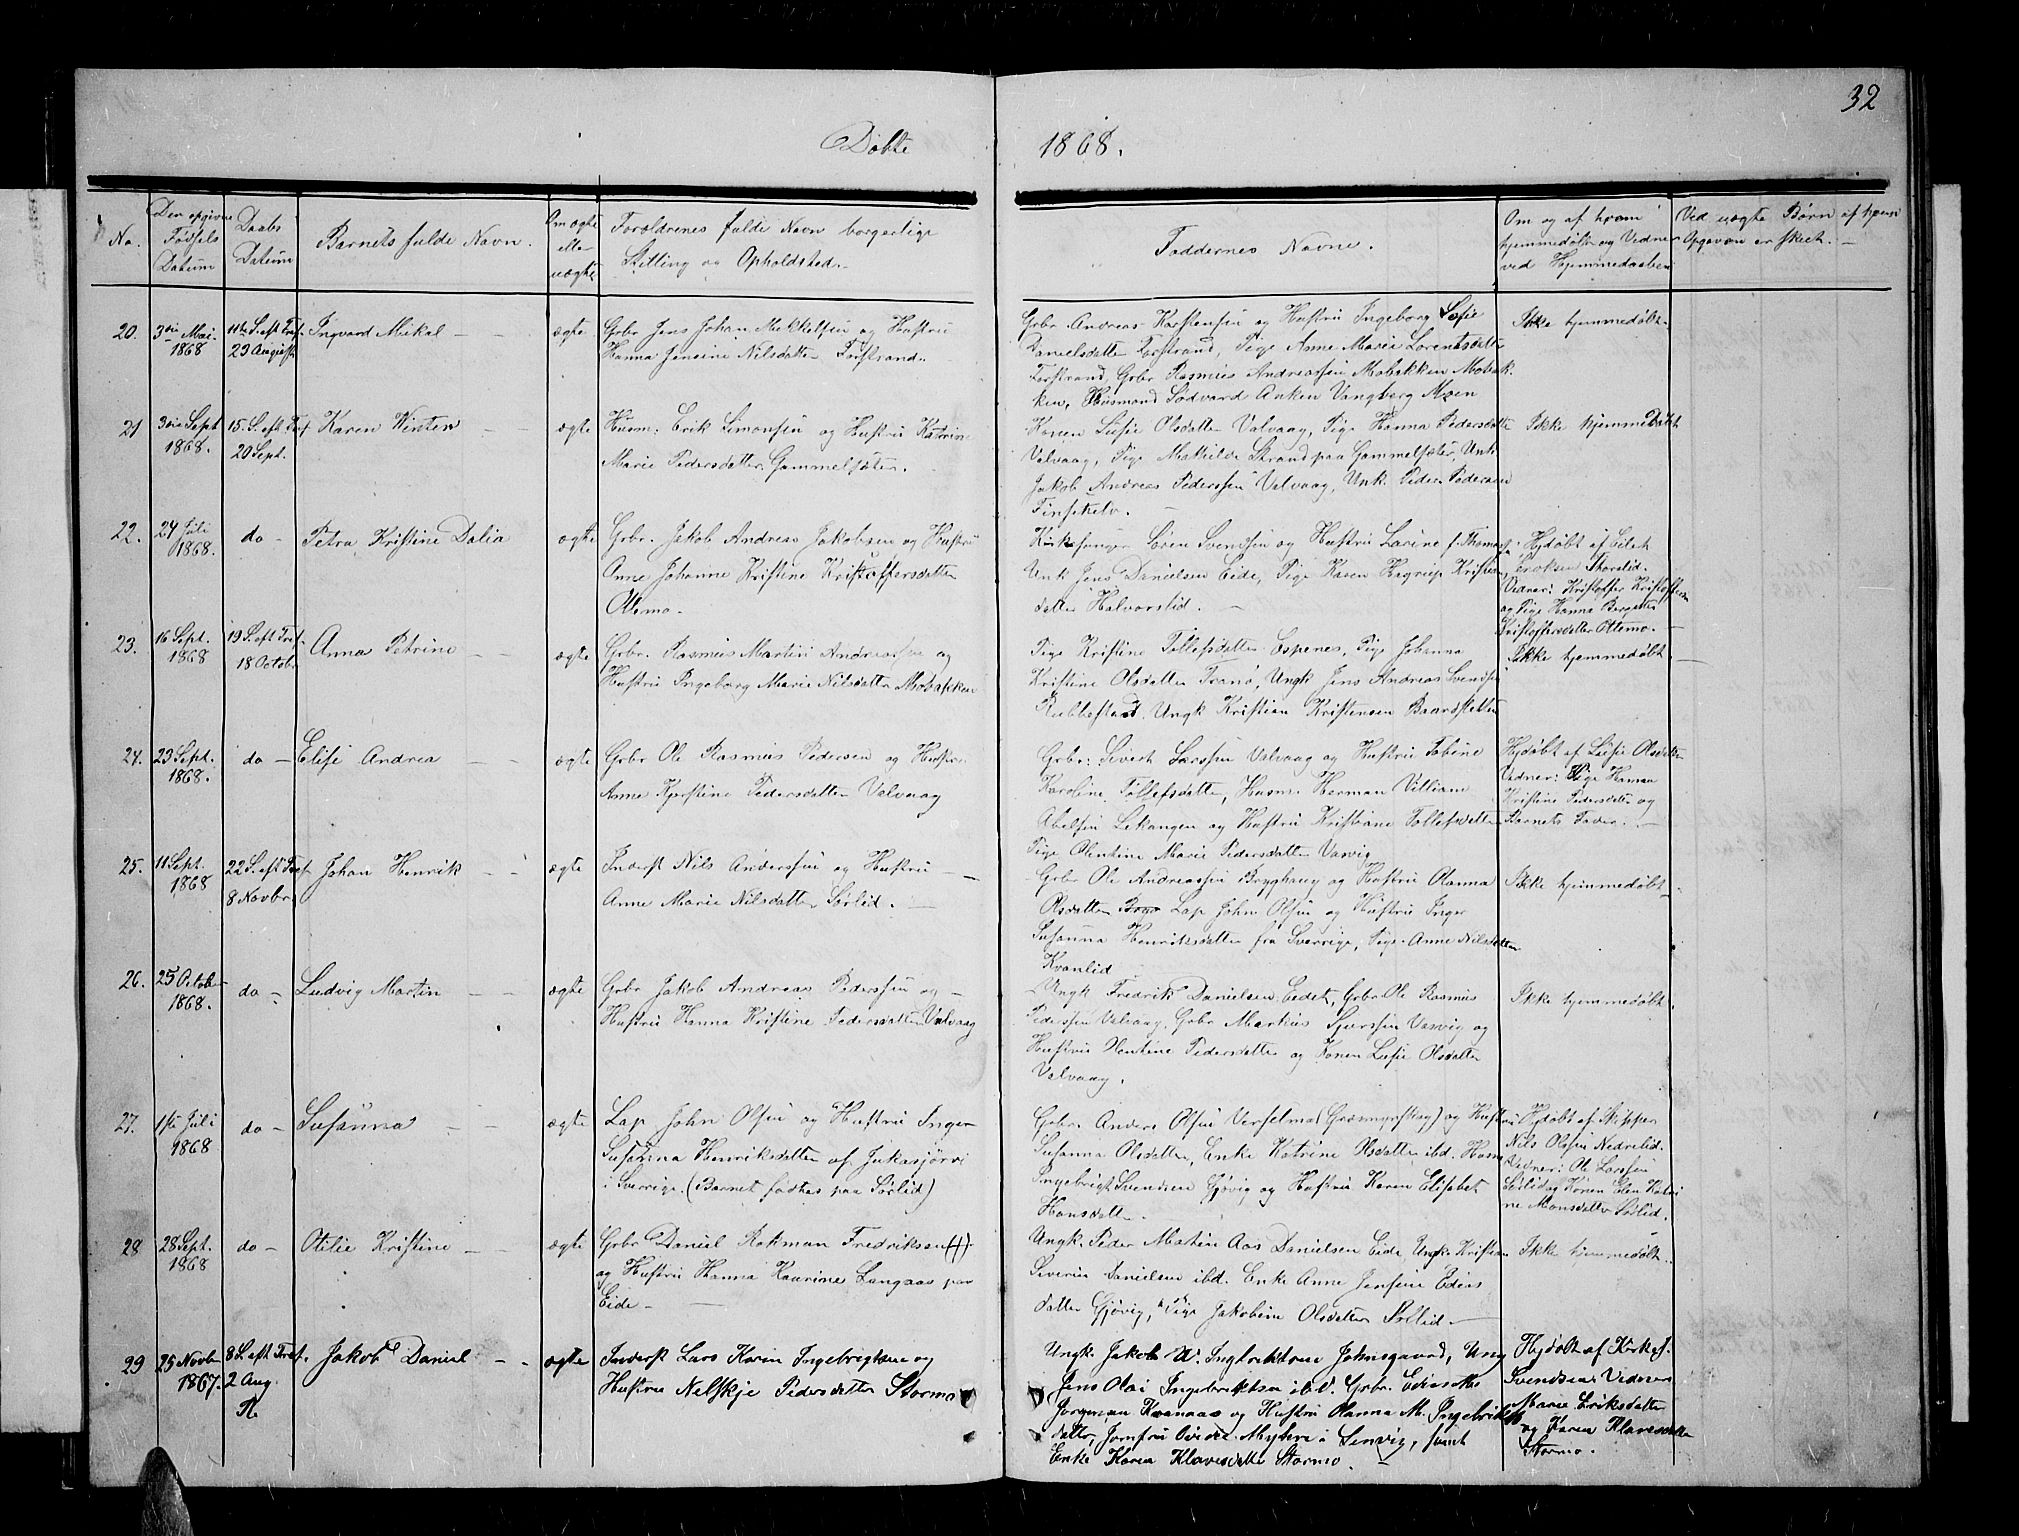 32
Døbte 1868.
No.
Den opgivne
Fødsels
Datum
Daabs
Datum
Barnets fulde Navn.
Om ægte
eller
uægte
Forældrenes fulde Navn borgerlige
Stilling og Opholdsted.
Faddernes Navne.
Om og af hvem
hjemmedøbt og Vidner
ved Hjemmedaaben
Ved uægte Børn af hvem
Opgaven er skeet.
20. 3die Mai 11te S. eft Tref. Ingvard Mikal ægte Grbr Jens Johan Mikkelsen og Hustru
1868 23 August Hanna Jensine Nilsdatter Forstrand.
Grbr. Andreas Karstensen og Hustru Ingeborg Sofie
Danielsdatter Forstrand, Pige Anne Marie Lorentsdatter
Forstrand, Grbr Rasmus Andreassen Mobakken Mobak-
ken, Husmand Sødvard Anken Vangberg Moen
Ikke hjemmedøbt.
21 3die Sept 15. S. eft Tref Karen Winter ægte Husm: Erik Simonsen og Hustru Katrine
1868. 20 Sept. Marie Pedersdatter Gammelsæter.
Konen Lusie Olsdatter Valvaag, Pige Hanna Pedersdatter
Valvaag, Pige Mathilde Strand paa Gammelsæter, Unk
Jakob Andreas Pedersen Valvaag, Unk. Peder Pedersen
Finfjeldv.
Ikke hjemmedøbt
22. 24 Juli do Petra Kristine Dalia ægte Grbr. Jakob Andreas Jakobsen og Hustru
1868. Anne Johanne Kristine Kristoffersdatter
Ottemo.
Kirkesanger Sören Svendsen og Hustru Larine f. Thomas
Unk Jens Danielsen Eide, Pige Karen Hagrup Kristen
datter Halvorslid.
Hjdøbt af Eilert
Eriksen Storslid.
Vidner: Kristoffer Kristoffersen
og Pige Hanna Bergitte
Kristoffersdatter Ottemo.
23. 16 Sept. 19 S. eft Tref. Anna Petrine ægte Grbr. Rasmus Martin Andreassen og
1868 18 Octobr Hustru Ingeborg Marie Nilsdatter Mobakken
Pige Kristine Tollefsdatter Espenes, Pige Johanna
Kristine Olsdatter Tranö, Ungk Jens Andreas Svendsen
Rubbestad. Ungk Kristian Kristensen Baardsletten
Ikke hjemmedøbt.
24. 23 Sept. do Elise Andrea ægte Grbr Ole Rasmus Pedersen og Hustru
1868. Anne Kjerstine Pedersdatter Valvaag
Grbr: Sivert Larssen Valvaag og Hustru Tobine
Karoline Tollefsdatter, Husm. Herman Villiam
Abelsen Lekangen og Hustru Kristiane Tollefsdatter
Pige Olentine Marie Pedersdatter Vasvig
Hjdøbt af Lusie Olsdatter
Vidner: Pige Hanna
Kristine Pedersdatter og
Barnets Fader.
25. 11 Sept. 22 S. eft Tref Johan Henrik ægte Inderst Nils Anderssen og Hustru
1868 8 Novbr. Anne Marie Nilsdatter Sørlid.
Grbr Ole Andreassen Bryghaug og Hustru Olanna
Olsdatter Lap John Olsen og Hustru Inger
Susanna Henriksdatter fra Sverrige, Pige Anne Nilsdatter
Kvanlid
Ikke hjemmedøbt
26. 25 October do Ludvig Martin ægte Grbr Jakob Andreas Pederssen og
1868. Hustru Hanna Kristine Pedersdatter Valvaag
Ungk Fredrik Danielsen Eidet, Grbr Ole Rasmus
Pederssen Valvaag, Grbr Markus Sjurssen Vasvig og
Hustru Olentine Pedersdatter og Konen Lusie Olsdatter
Valvaag.
Ikke hjemmedøbt
27. 1ste Juli do Susanna ægte Lap John Olsen og Hustru Inger
1868 Susanna Henriksdatter af Jukasjörvi
i Sverrige. (Barnet fødtes paa Sørlid)
Grbr. Anders Olsen Verselmo og Hustru
Susanna Olsdatter, Enke Katrine Olsdatter ibd. Husm
Ingebrigt Svendsen Gjøvig og Hustru Karen Elisabet
Hansdatter.
Hjdøbt af Skipper
Nils Olsen Nedrelid
Vidner: Ole Larssen
Sørlid og Konen Elen Katri
ne Monsdatter Sørlid.
28 28 Sept. do Otilie Kristine ægte Grbr Daniel Rotman Fredriksen
1868 og Hustru Hanna Kaurine Langaas paa
Eide
Ungk. Peder Martin Aas Danielsen Eide, Ungk Kristian
Severin Danielsen ibd. Enke Anne Jensine Edias
datter Gjøvig, Pige Jakobine Olsdatter Sørlid
Ikke hjemmedøbt.
29 25 Novbr 8 S. eft Tref. Jakob Daniel ægte Inderst Lars Korin Ingebrigtsen og
1867. 2 Aug. Hustru Nilskje Pedersdatter Stormo
Ungk. Jakob W. Ingbriktsen Johnsgaard, Ung
Jens Olai Ingebriktsen ibd. Grbr. Edias
Jörgensen Kvanaas og Hustru Olanna M. Ingebrikts
datter, Jomfru Myhre i Lenvig, samt
Enke Karen Klavesdatter Stormo.
Hjdøbt af Kirkes.
Svendsen Vidner
Marie Eriksdatter
og Karen Klavesdatter
Stormo.